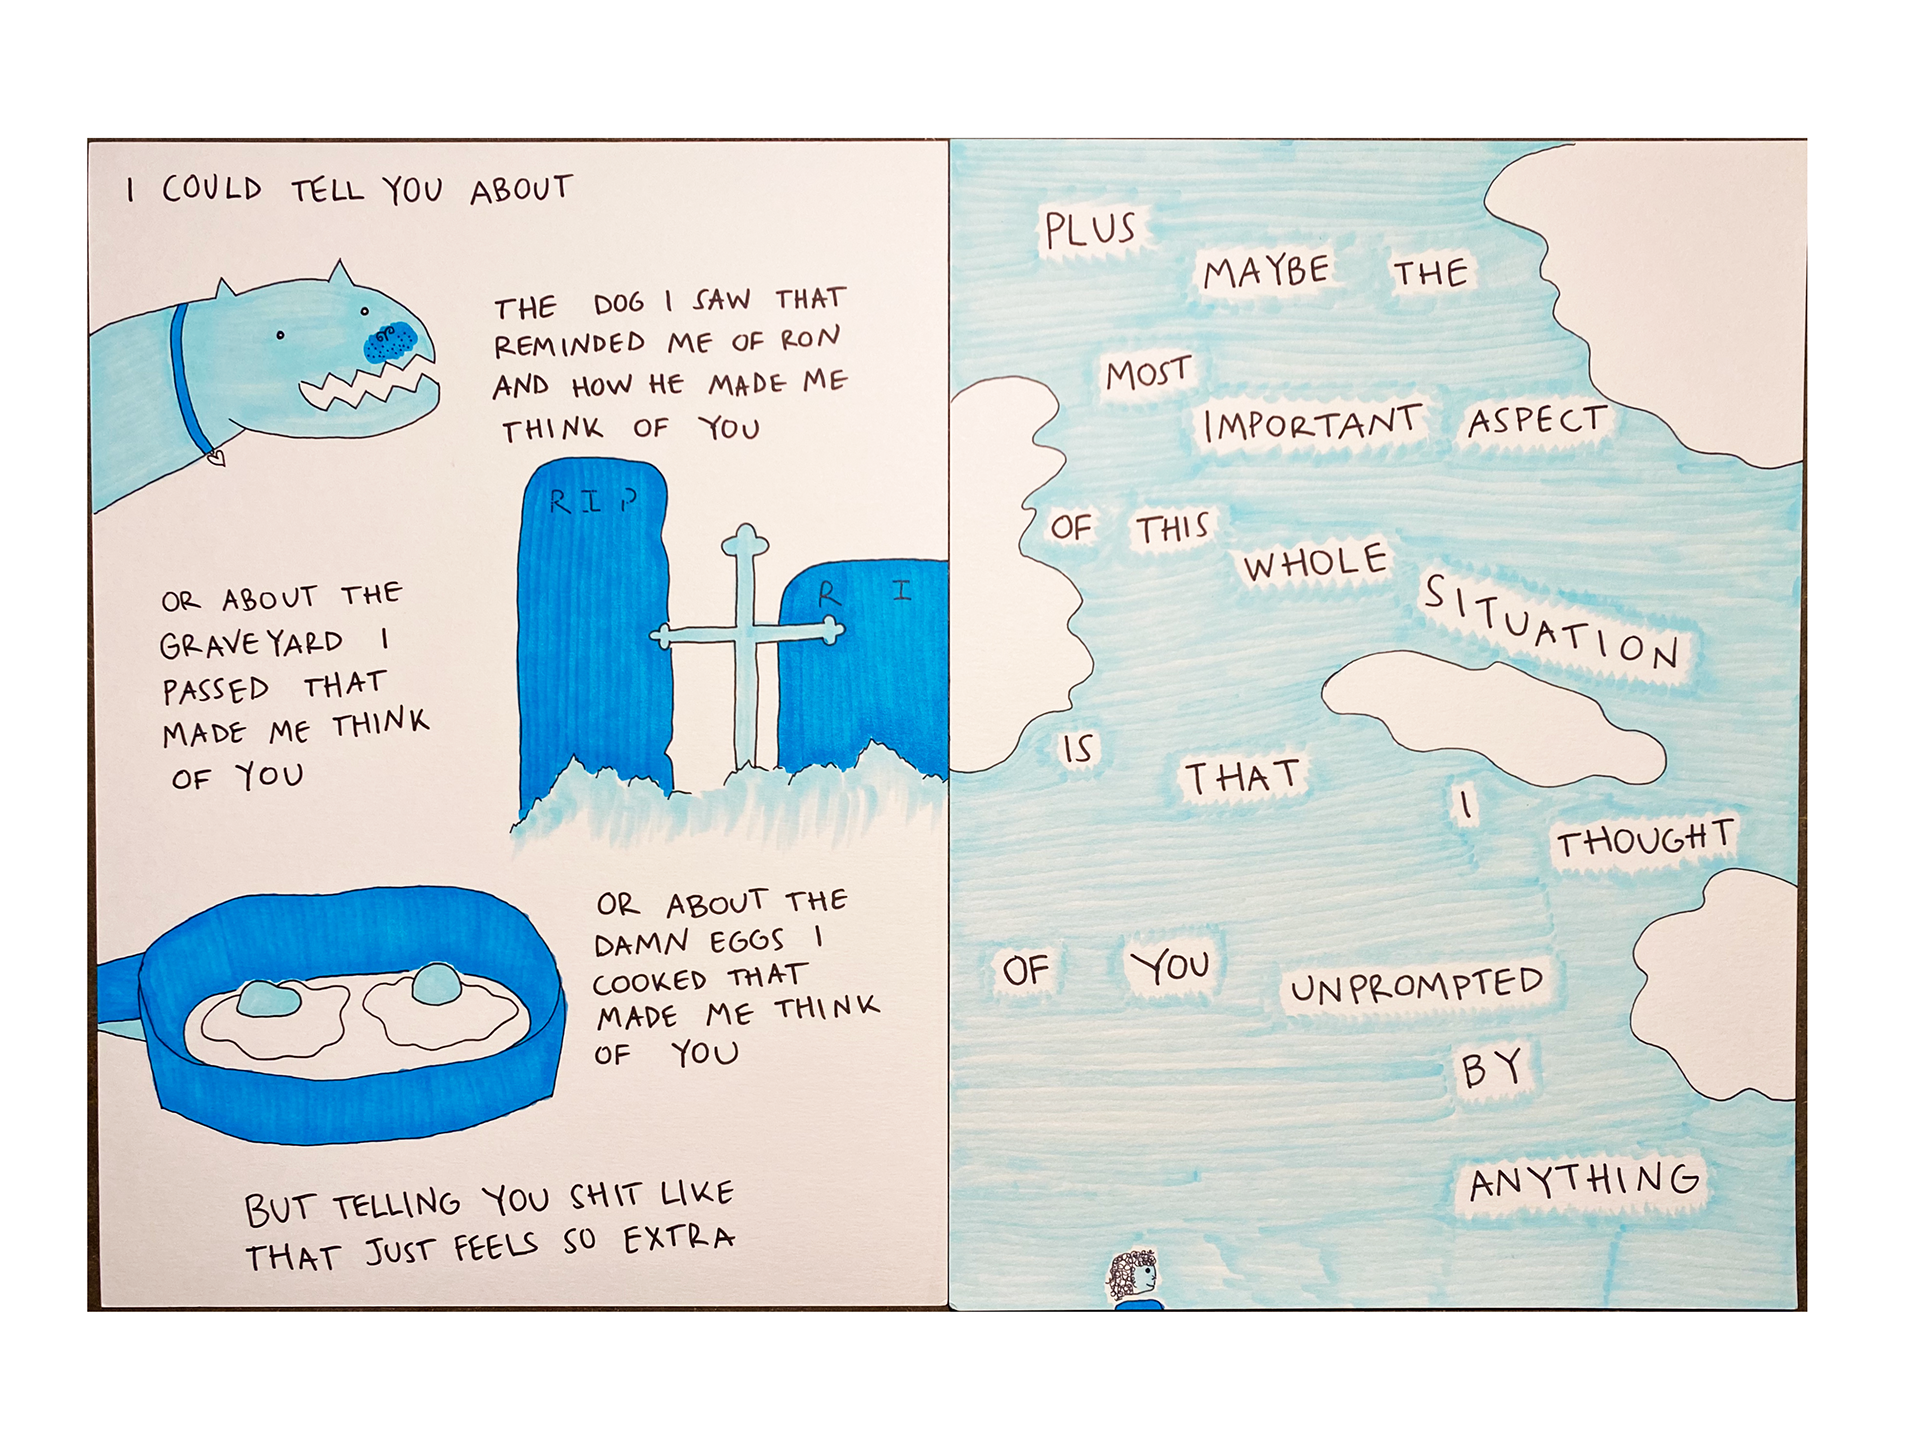 I COULD TELL YOU ABOUT
THE DOG I SAW THAT
REMINDED ME OF RON
AND HOW HE MADE ME
THINK OF YOU
RIP
R I
OR ABOUT THE
GRAVEYARD I
PASSED THAT
MADE ME THINK
OF YOU
OR ABOUT THE
DAMN EGGS I
COOKED THAT
MADE ME THINK
OF YOU
BUT TELLING YOU SHIT LIKE
THAT JUST FEELS SO EXTRA
PLUS
MAYBE THE
MOST
IMPORTANT ASPECT
OF THIS
WHOLE
SITUATION
IS
THAT
I
THOUGHT
OF YOU
UNPROMPTED
BY
ANYTHING